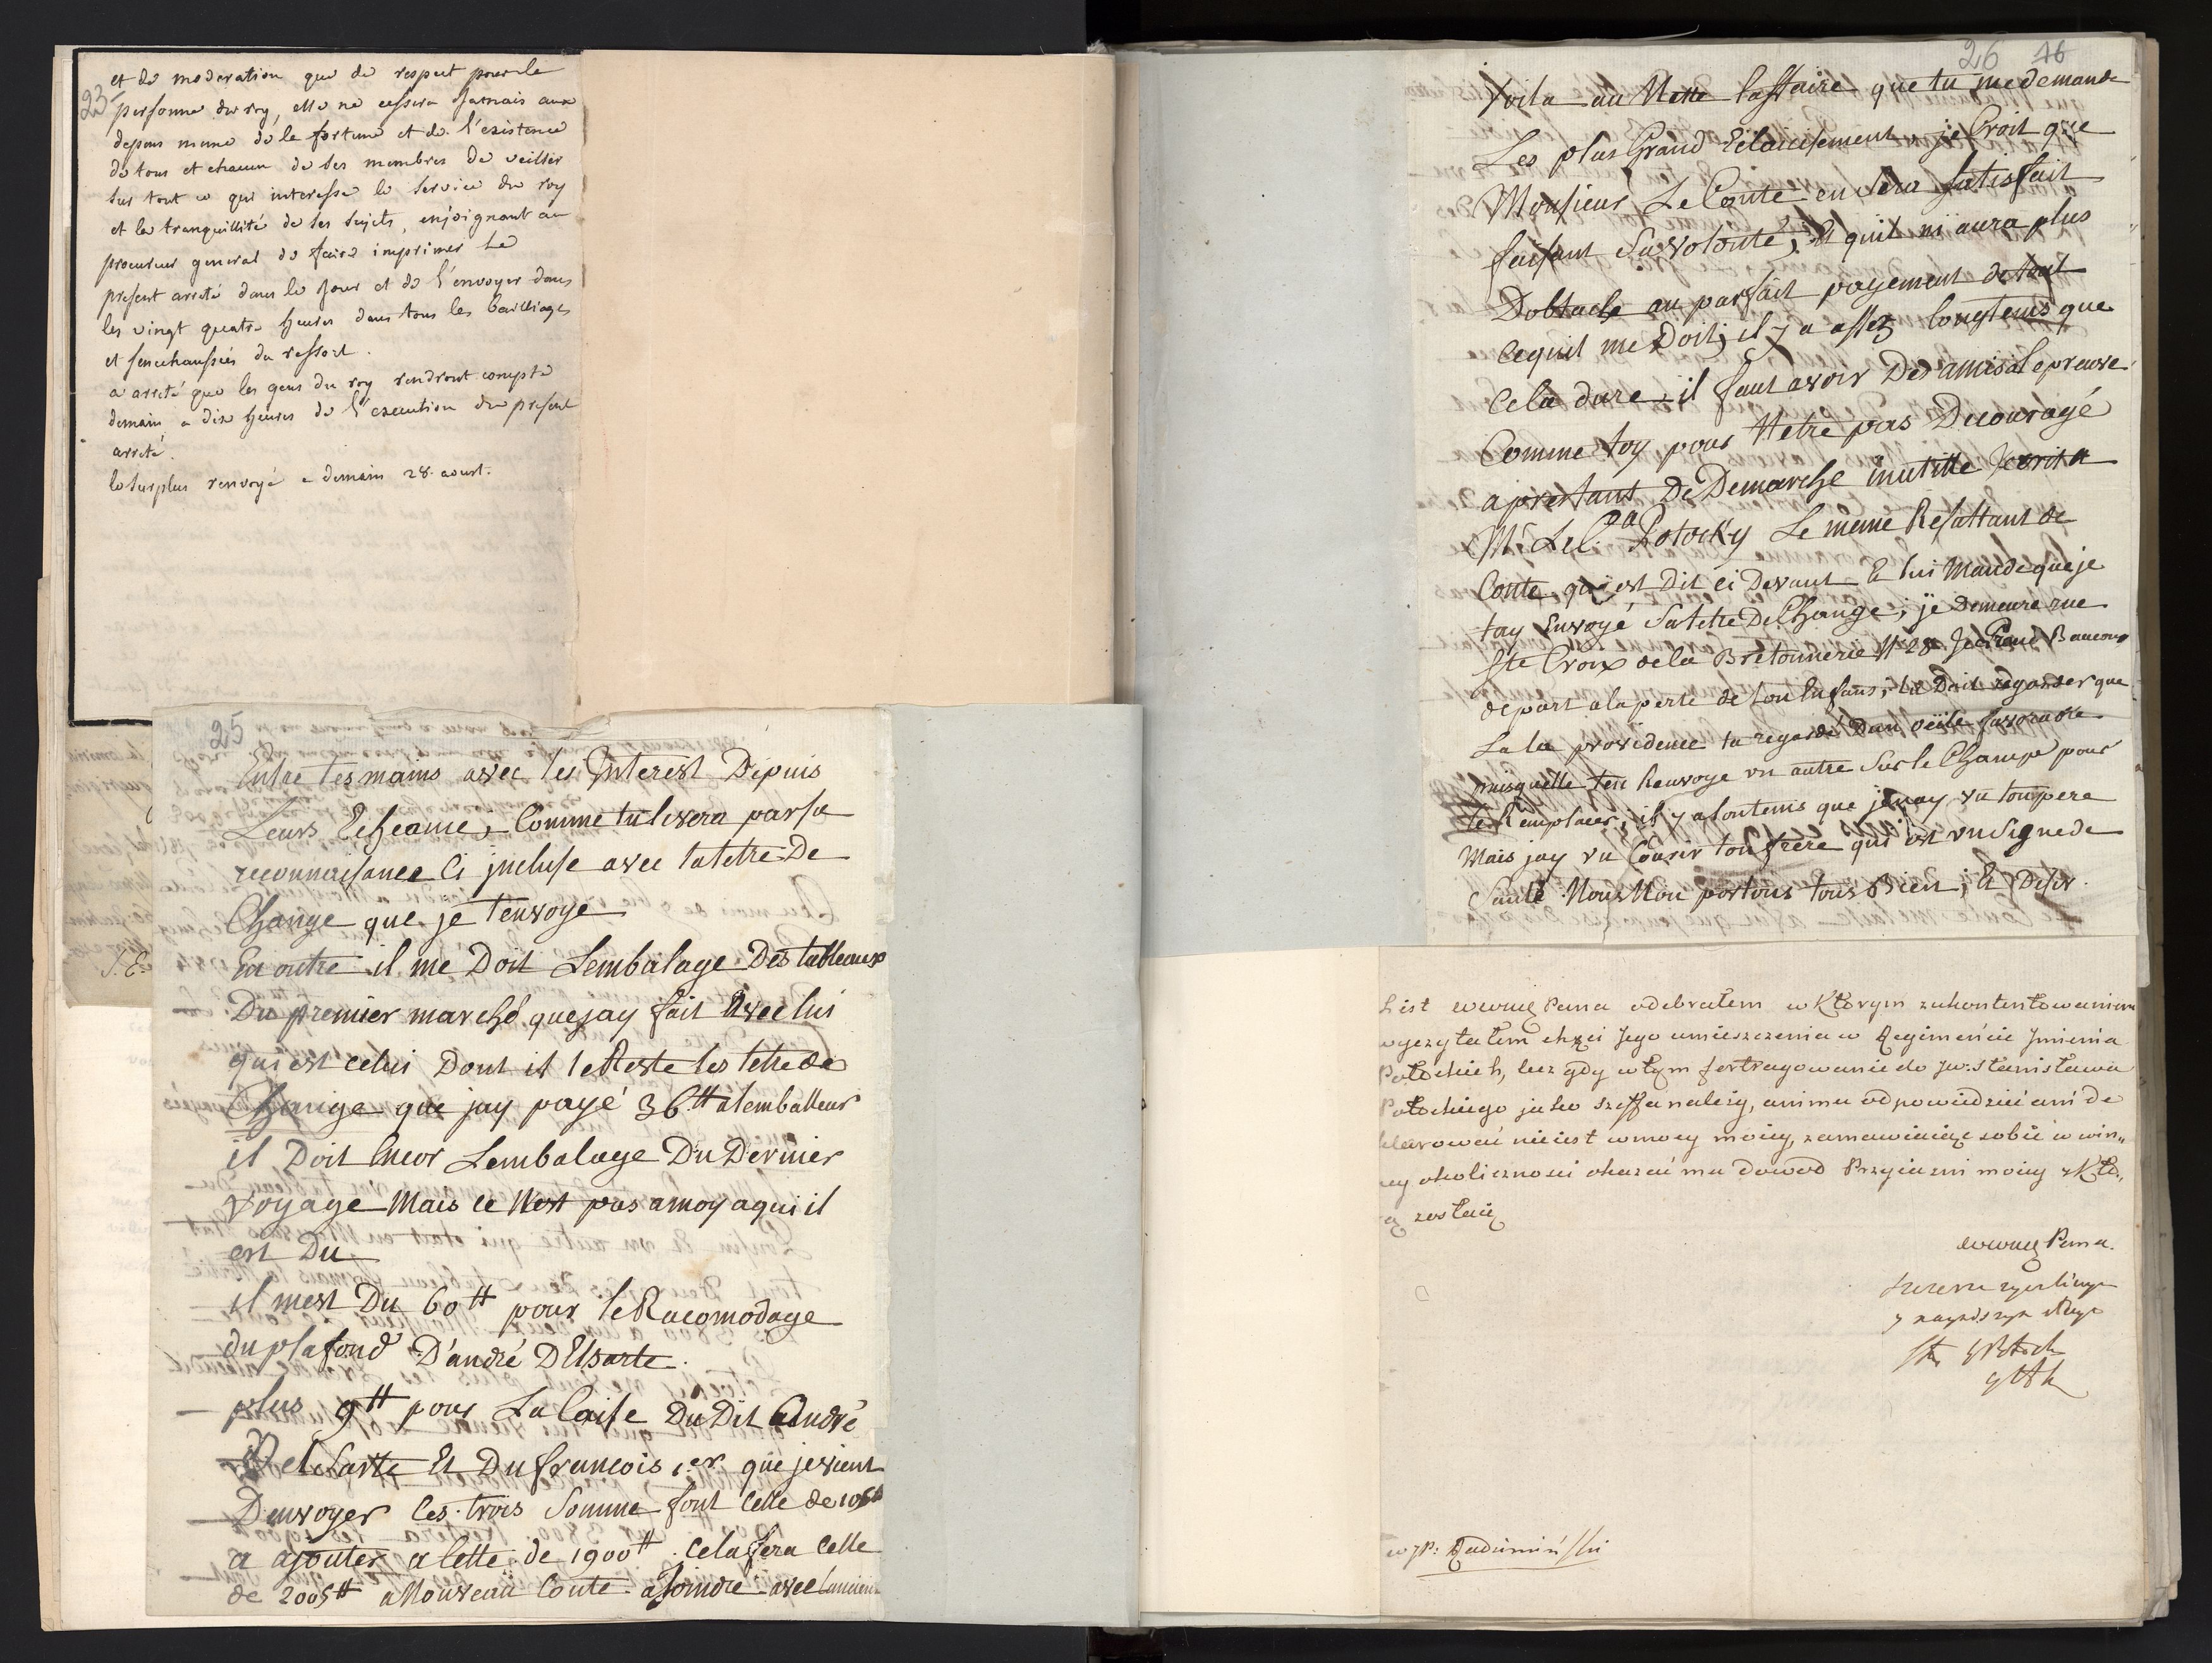 23
et de moderation que de respect pour la
personne du roy, elle ne cessera jamais aux
depens meme de la fortune et de l'existence
de tous et chacun de ses membres de veiller
sur tout ce qui interesse le service du roy
et la tranquillité de ses sujets, enjoignant au
procureur general de faire imprimer le
present arreté dans le jour et de l'envoyer dans
les vingt quatre heures dans tous les bailliages
et senechaussées du ressort.
a arreté que les gens du roy rendront compte
demain a dix heures de l'execution du present
arreté.
le surplus renvoyé a demain 28. aoust.
25
Entre tes mains avec les Interest Depuis
Leurs Echeance; Comme tu le vera par sa
reconnoisance Ci jncluse avec la letre De
Change que je t'envoye
En outre il me Doit Lembalage Des tableaux
Du premier marché que jay fait Avec lui
qui est celui Dont il te Reste les lettre de
Change que jay payé 36 tt a lemballeur
il Doit Encor Lembalage Du Dernier
voyage Mais ce Nest pas a moy a qui il
est Du
il mest Du 60 tt pour le Racomodage
du plafond D'andré Delsarte.
plus 9 tt pour La Caise Du Dit André
Del Sarte Et Du francois 1.er que je vient
Denvoyer Ces trois Somme font Celle de 105 tt
a ajouter a Cette de 1900 tt. cela fera Celle
de 2005 tt a Nouveau Conte a Joindre avec lancien
26 16
Voila au Nette laffaire que tu me demande
Les plus Grand Eclaicisement je Croit que
Monsieur Le Conte en Sera Satisfait
faisant Sa volonté; Et quil ni aura plus
Dobtacle au parfait payement de tout
Cequil me Doit; il y a assez longtems que
Cela dure, il faut avoir Des amis a lepreuve
Comme toy pour Netre pas Decouragé
apres tant De Demarche inutille Jecrit a
Mr. Le C. Potocky Le meme Resultant de
Conte qui est Dit ci Devant Et lui Mande que je
tay Envoyé Sa letre De Change; je demeure rue
Ste Croix de la Bretonnerie N 28 Je Prend Baucoup
de part a la perte de ton Enfans; tu Doit regarder que
La la providence ta regardé Dun oeïile favorable
puisquelle ten Renvoye un autre Sur le Champ pour
le Remplacer; il y a lontems que je nay vu ton pere
Mais jay vu Courir ton frere qui est un Signe de
Santé Nous Nou portons tous Bien; Et Desir
List wwmę Pana odebrałem w którym z ukontentowaniem
wyczytałem chęci Jego umieszczenia w Regimencie Jmienia
Potockich, lecz gdy w tym fortragowanie do Jw: Stanisława
Potockiego jako Szeffa należy, ani mu odpowiedzieć ani de
klarować nie iest w mocy moiey, zamawiaiąc sobie w win„
ney okoliczności okazać mu dowod Przyiazni moiey z Któ„
rą zostaię
wwmę Pana.
szczerze życzliwym
y naynizszym sługą
w JP: Radziminski